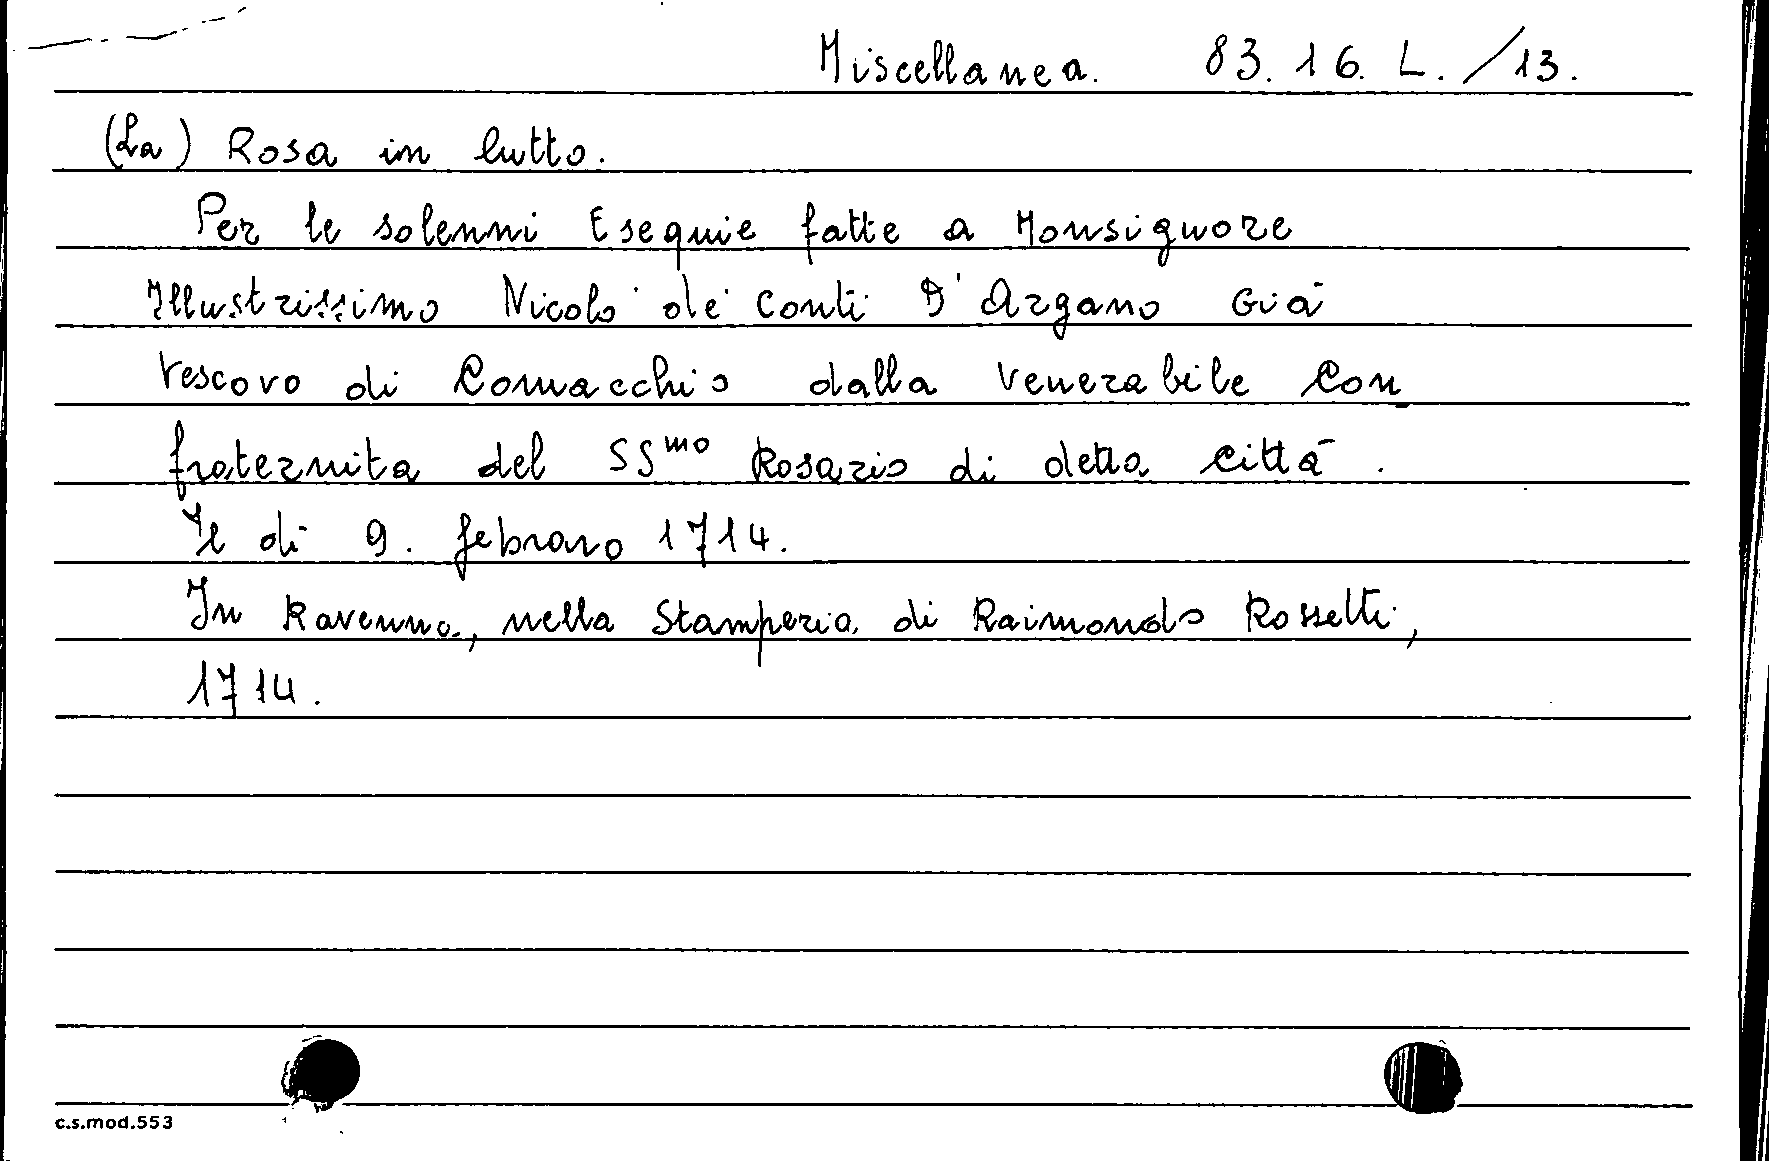 Miscellanea. 83. 16. L. /13.
(La) Rosa in lutto.
Per le solenni Esequie fatte a Monsignore
Illustrissimo Nicolò de' Conti D' Argano Già
Vescovo di Comacchio dalla Venerabile Con
fraternita del SSmo Rosario di detta Città.
Il dì 9. febraro 1714.
In Ravenna, nella Stamperia di Raimondo Rossetti,
1714.
c.s.mod.553